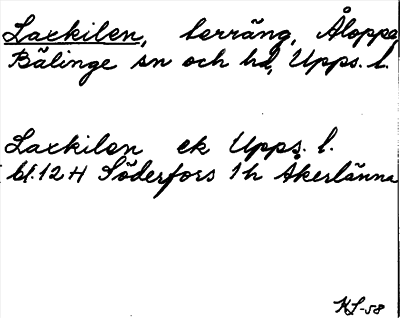 Laxkilen, terräng, Åloppe,
Bälinge sn och hd, Upps. l.
Laxkilen ek Upps. l.
bl. 12 H Söderfors 1h Åkerlänna
KL-58